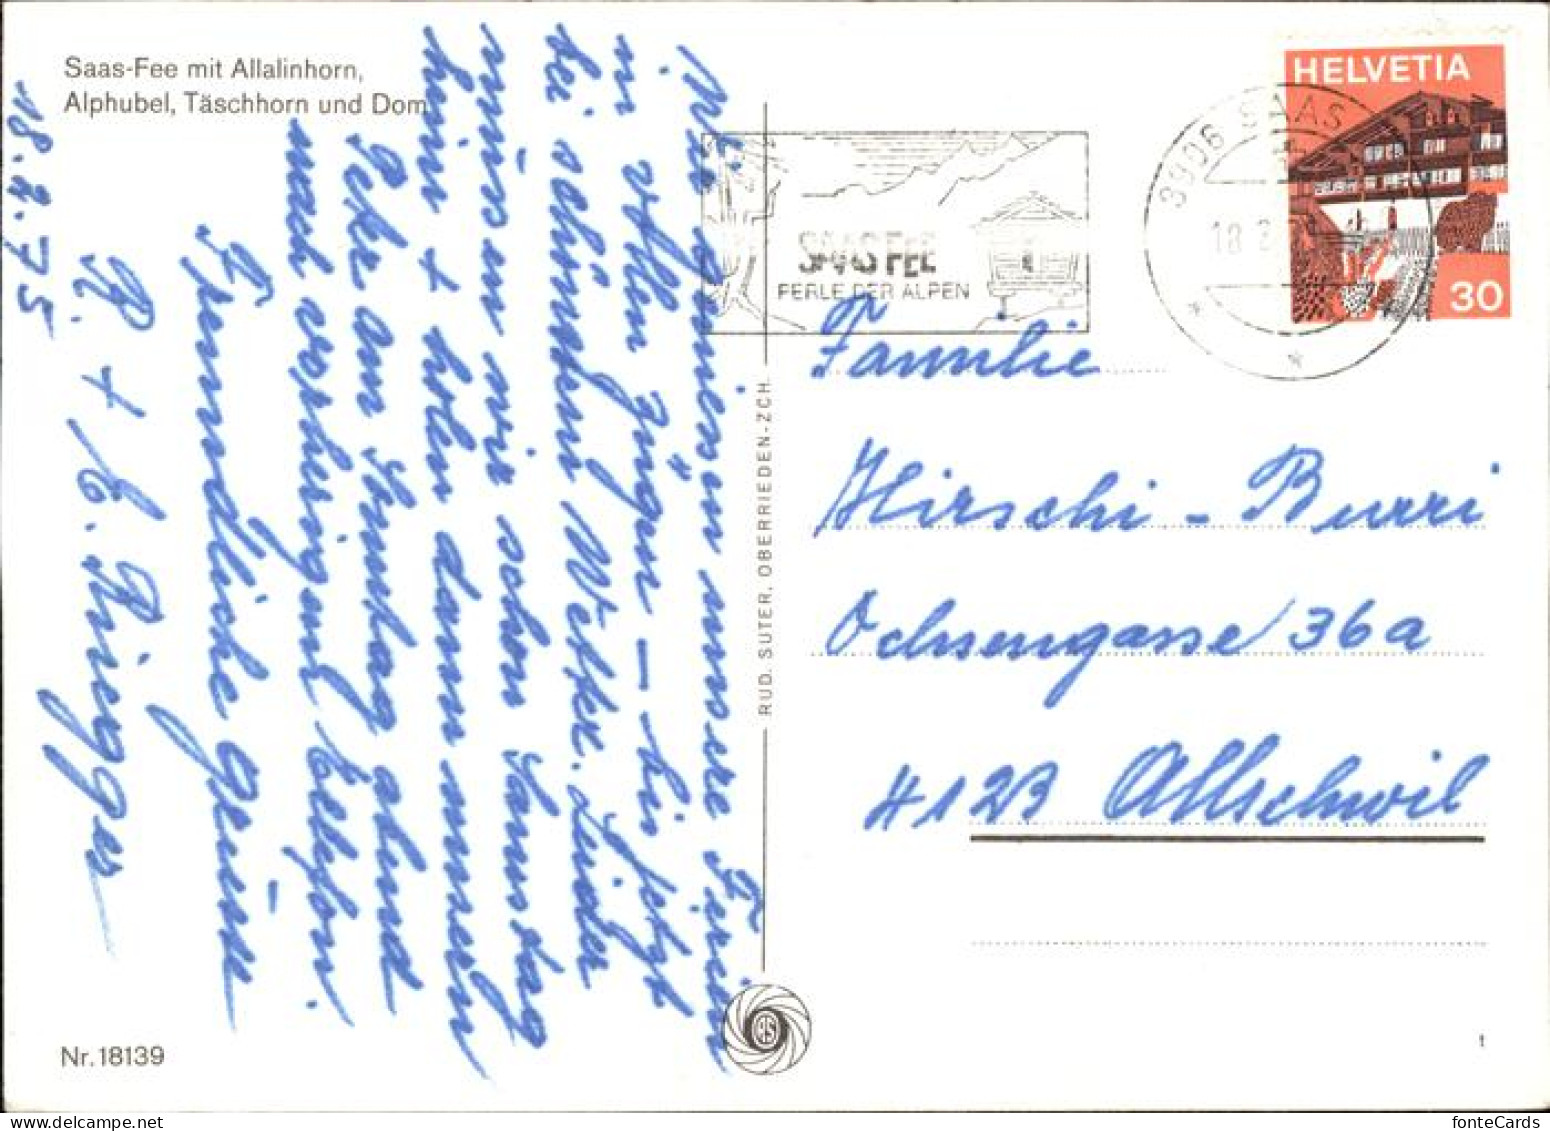 Saas-Fee mit Allalinhorn,
Alphubel, Täschhorn und Dom
18.2.75
Wir geniessen unsere Ferien
in vollen Zügen – bis jetzt
bei schönstem Wetter. Leider
müssen wir schon Samstag
heim + holen dann unsern
Peter am Sonntag abend
nach vorherigem Telefon.
Freundliche Grüsse
R. + E. Rieggер
HELVETIA
30
3906 SAAS
18 2
SAAS FEE
PERLE DER ALPEN
Familie
Hirschi-Burri
Ochsengasse 36a
4123 Allschwil
RUD. SUTER, OBERRIEDEN-ZCH.
RS
Nr. 18139
1
fonteCards